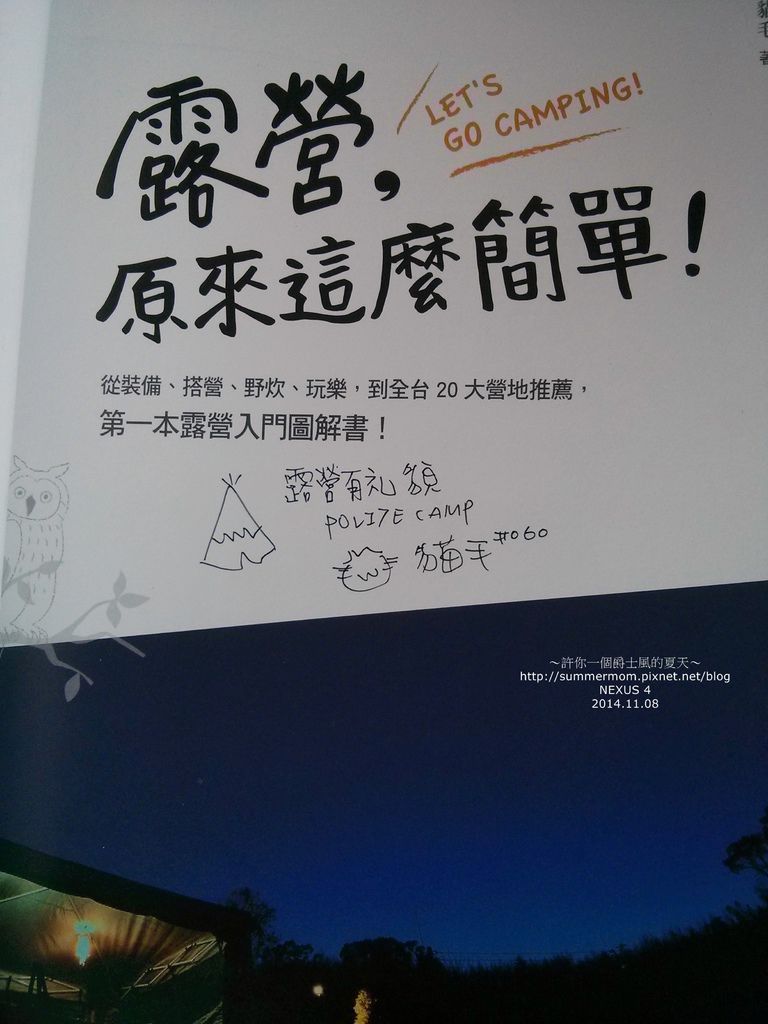 貓毛 著
露營,
LET'S
GO CAMPING!
原來這麼簡單!
從裝備、搭營、野炊、玩樂，到全台 20 大營地推薦，
第一本露營入門圖解書！
露營有礼貌
POLITE CAMP
貓毛 #060
～許你一個爵士風的夏天～
http://summermom.pixnet.net/blog
NEXUS 4
2014.11.08